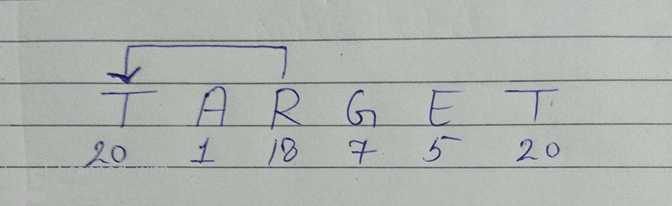 T A R G E T
20 1 18 7 5 20